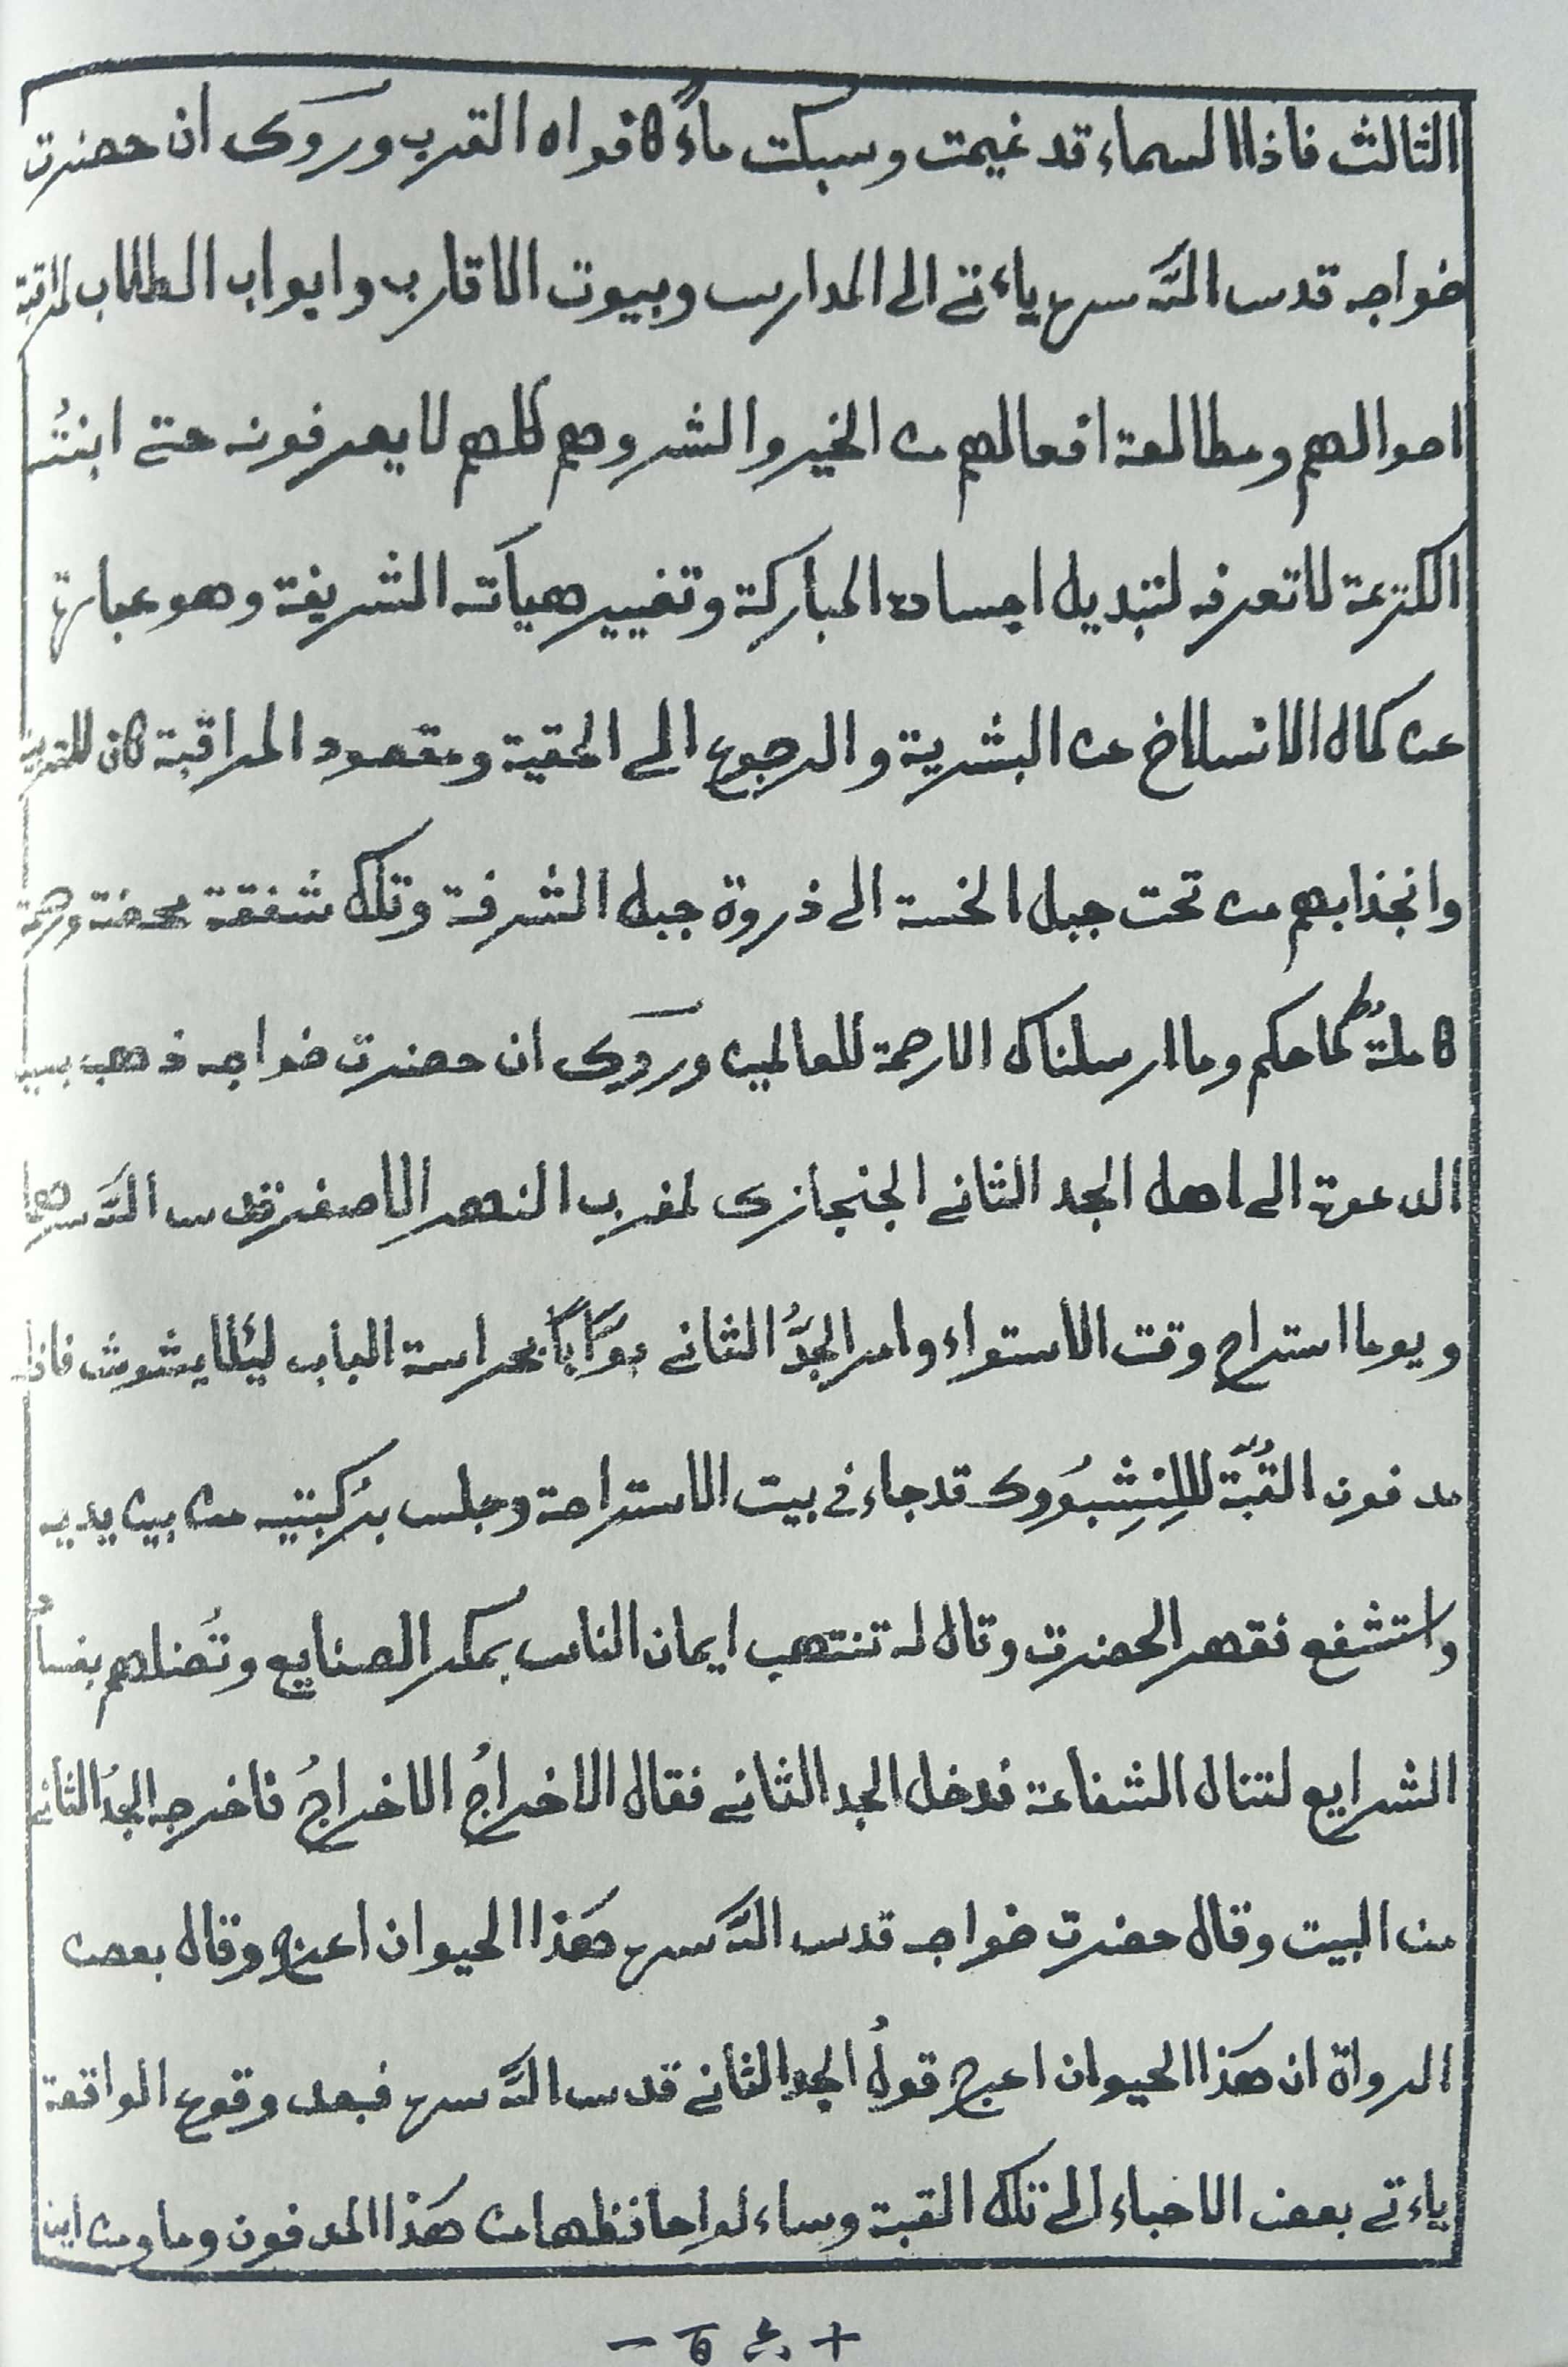 الثالث فاذا السماء قد غيمت وسبكت ماءً كافواه القرب وروى ان حضرت
خواجه قدس اللّه سره ياءتى الى المدارس وبيوت الاقارب وابواب الطلاب لمراقبة
احوالهم ومطالعة افعالهم من الخير والشر وهم كلهم لا يعرفونه حتى ابنتُـ
الكريمة لا تعرفه لتبديل اجساده المباركة وتغيير هيأته الشريفة وهو عبارة
عن كمال الانسلاخ عن البشرية والرجوع الى الحقية ومقصود المراقبة كان للتربية
وانجذابهم من تحت جبل الخسة الى ذروة جبل الشرفة وتلك شفقة محضة ورحمة
كاملة كما حكم وما ارسلناك الا رحمة للعالمين وروى ان حضرت خواجه ذهب بسبب
الدعوة الى اهل الجد الثانى الجنجازى لمغرب النهر الاصفر قدس اللّه سرهما
ويوما استراح وقت الاستواء وامر الجدُّ الثانى بوّاباً بحراسة الباب ليئلا يشوش فاذا
مدفون القُبّة لِلِنْشِبُوروى قد جاء فى بيت الاستراحة وجلس بركبتيه من بين يديه
واستشفع فقهر الحضرت وقال له تنتهب ايمان الناس بمكر الصنايع وتُضلهم بفساد
الشرايع لتنال الشفاعة فدخل الجد الثانى فقال الاخراجُ الاخراجُ فاخرجه الجدُ الثانى
من البيت وقال حضرت خواجه قدس اللّه سره هَذا الحيوان اعرج وقال بعض
الرواة ان هَذا الحيوان اعرج قولُ الجد الثانى قدس اللّه سره فبعد وقوع الواقعة
ياءتى بعض الاحباء الى تلك القبة وساءلوا حافظها من هَذا المدفون وما ومن اين